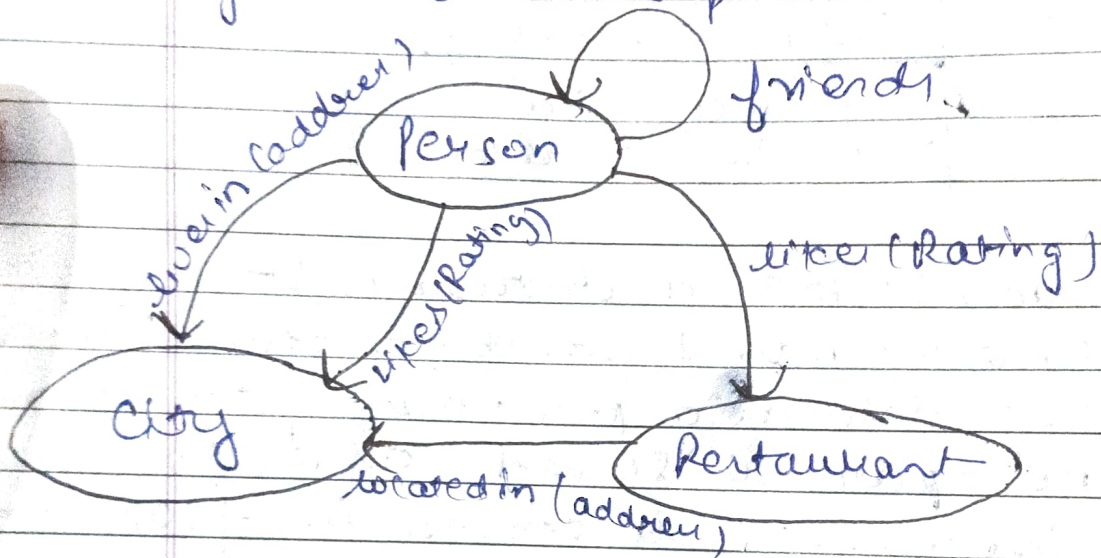 friends
Person
lives in (address)
likes (Rating)
likes (Rating)
City
Restaurant
located in (address)